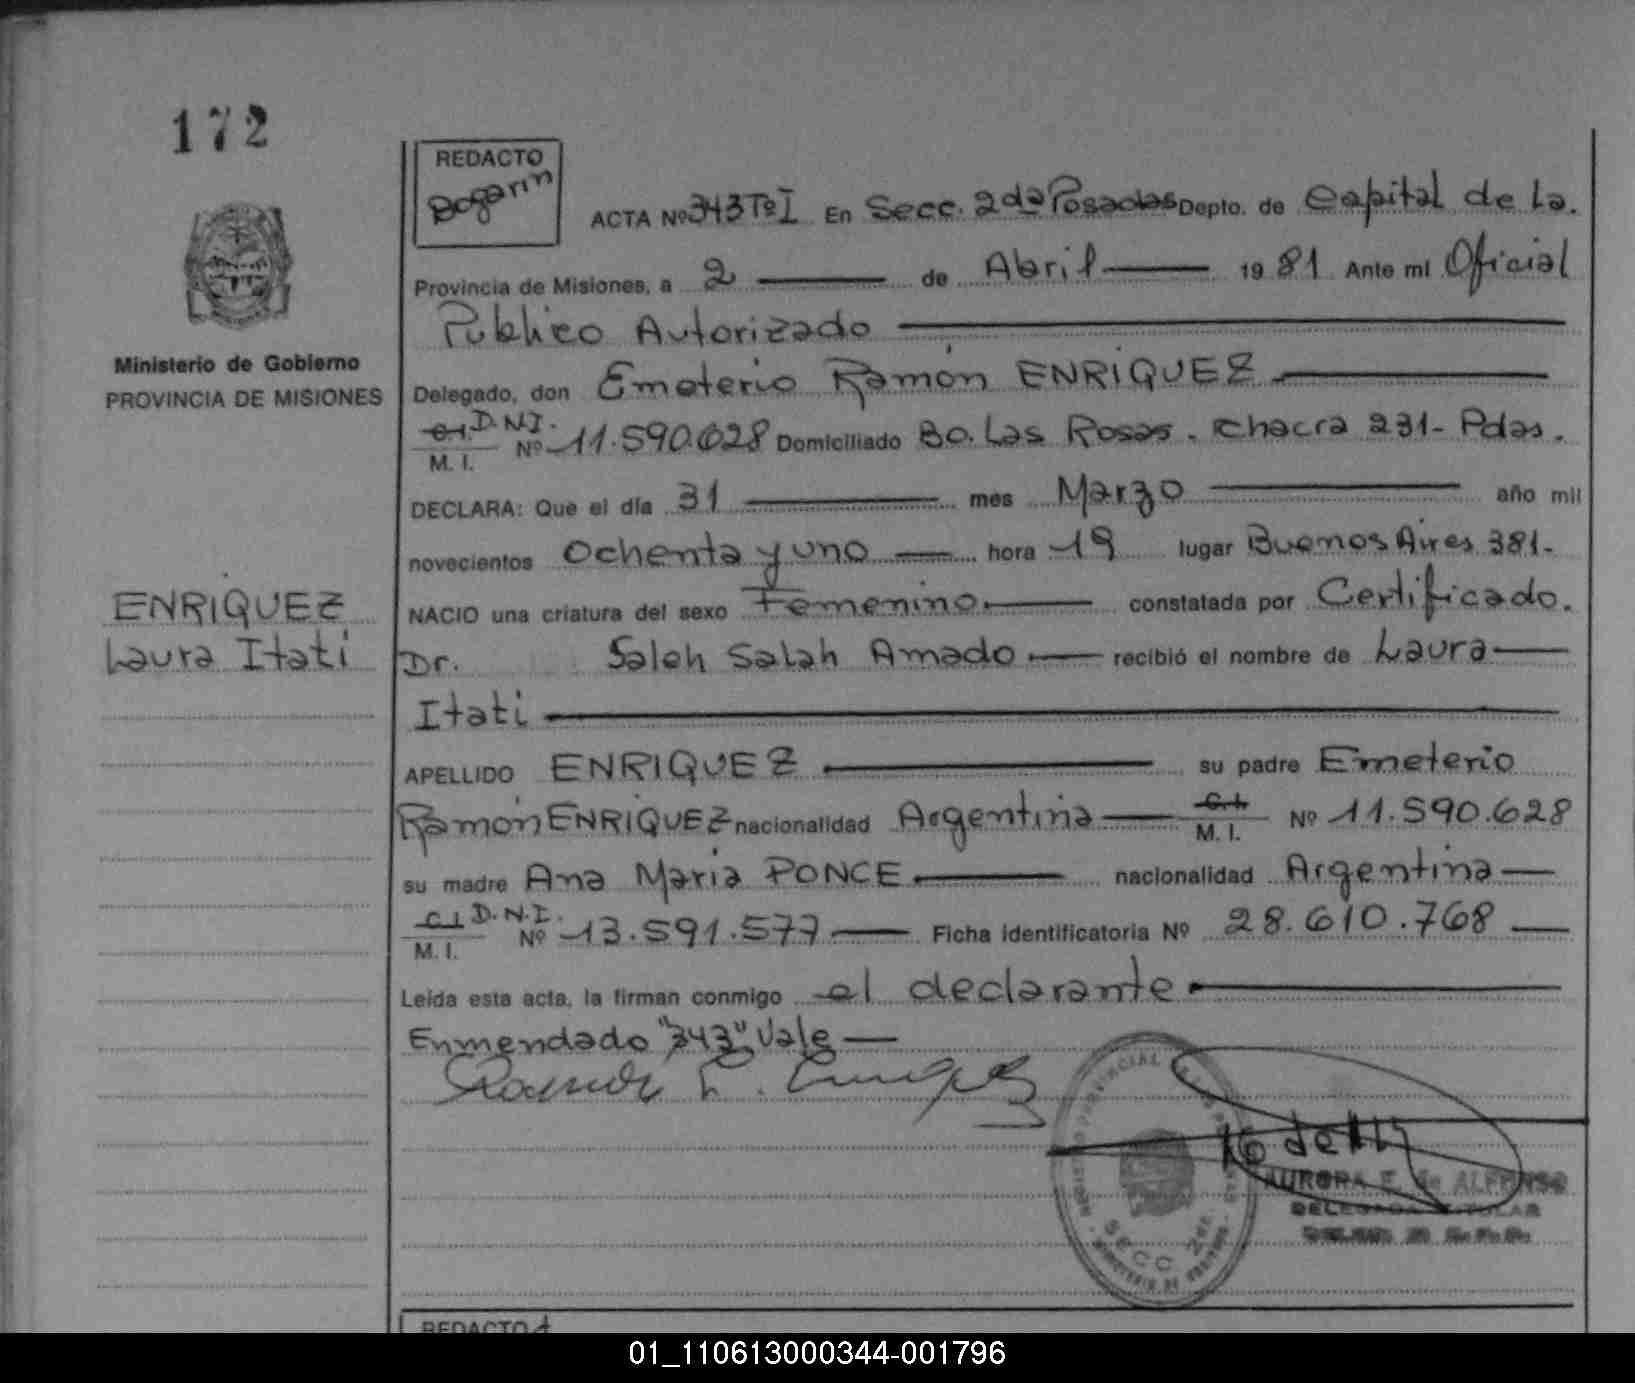 172
REDACTO
Bogarin
ACTA Nº 343 Tº I En Secc. 2da Posadas Depto. de Capital de La.
Provincia de Misiones, a 2 de Abril 1981 Ante mi Oficial
Publico Autorizado
Ministerio de Gobierno
PROVINCIA DE MISIONES
Delegado, don Emeterio Ramón ENRIQUEZ
C.I. D.N.I.
M. I. Nº 11.590.628 Domiciliado Bo. Las Rosas. Chacra 231- Pdas.
DECLARA: Que el día 31 mes Marzo año mil
novecientos Ochenta y uno hora 19 lugar Buenos Aires 381.
ENRIQUEZ
Laura Itati
NACIO una criatura del sexo Femenino constatada por Certificado.
Dr. Saleh Salah Amado recibió el nombre de Laura
Itati
APELLIDO ENRIQUEZ su padre Emeterio
Ramón ENRIQUEZ nacionalidad Argentina C.I. M. I. Nº 11.590.628
su madre Ana Maria PONCE nacionalidad Argentina
C.I. D.N.I.
M. I. Nº 13.591.577 Ficha identificatoria Nº 28.610.768
Leída esta acta, la firman conmigo el declarante
Enmendado "343" Vale
SECC 2da.
AURORA E. de ALFONSO
DELEGADA TITULAR
REDACTO
01_110613000344-001796